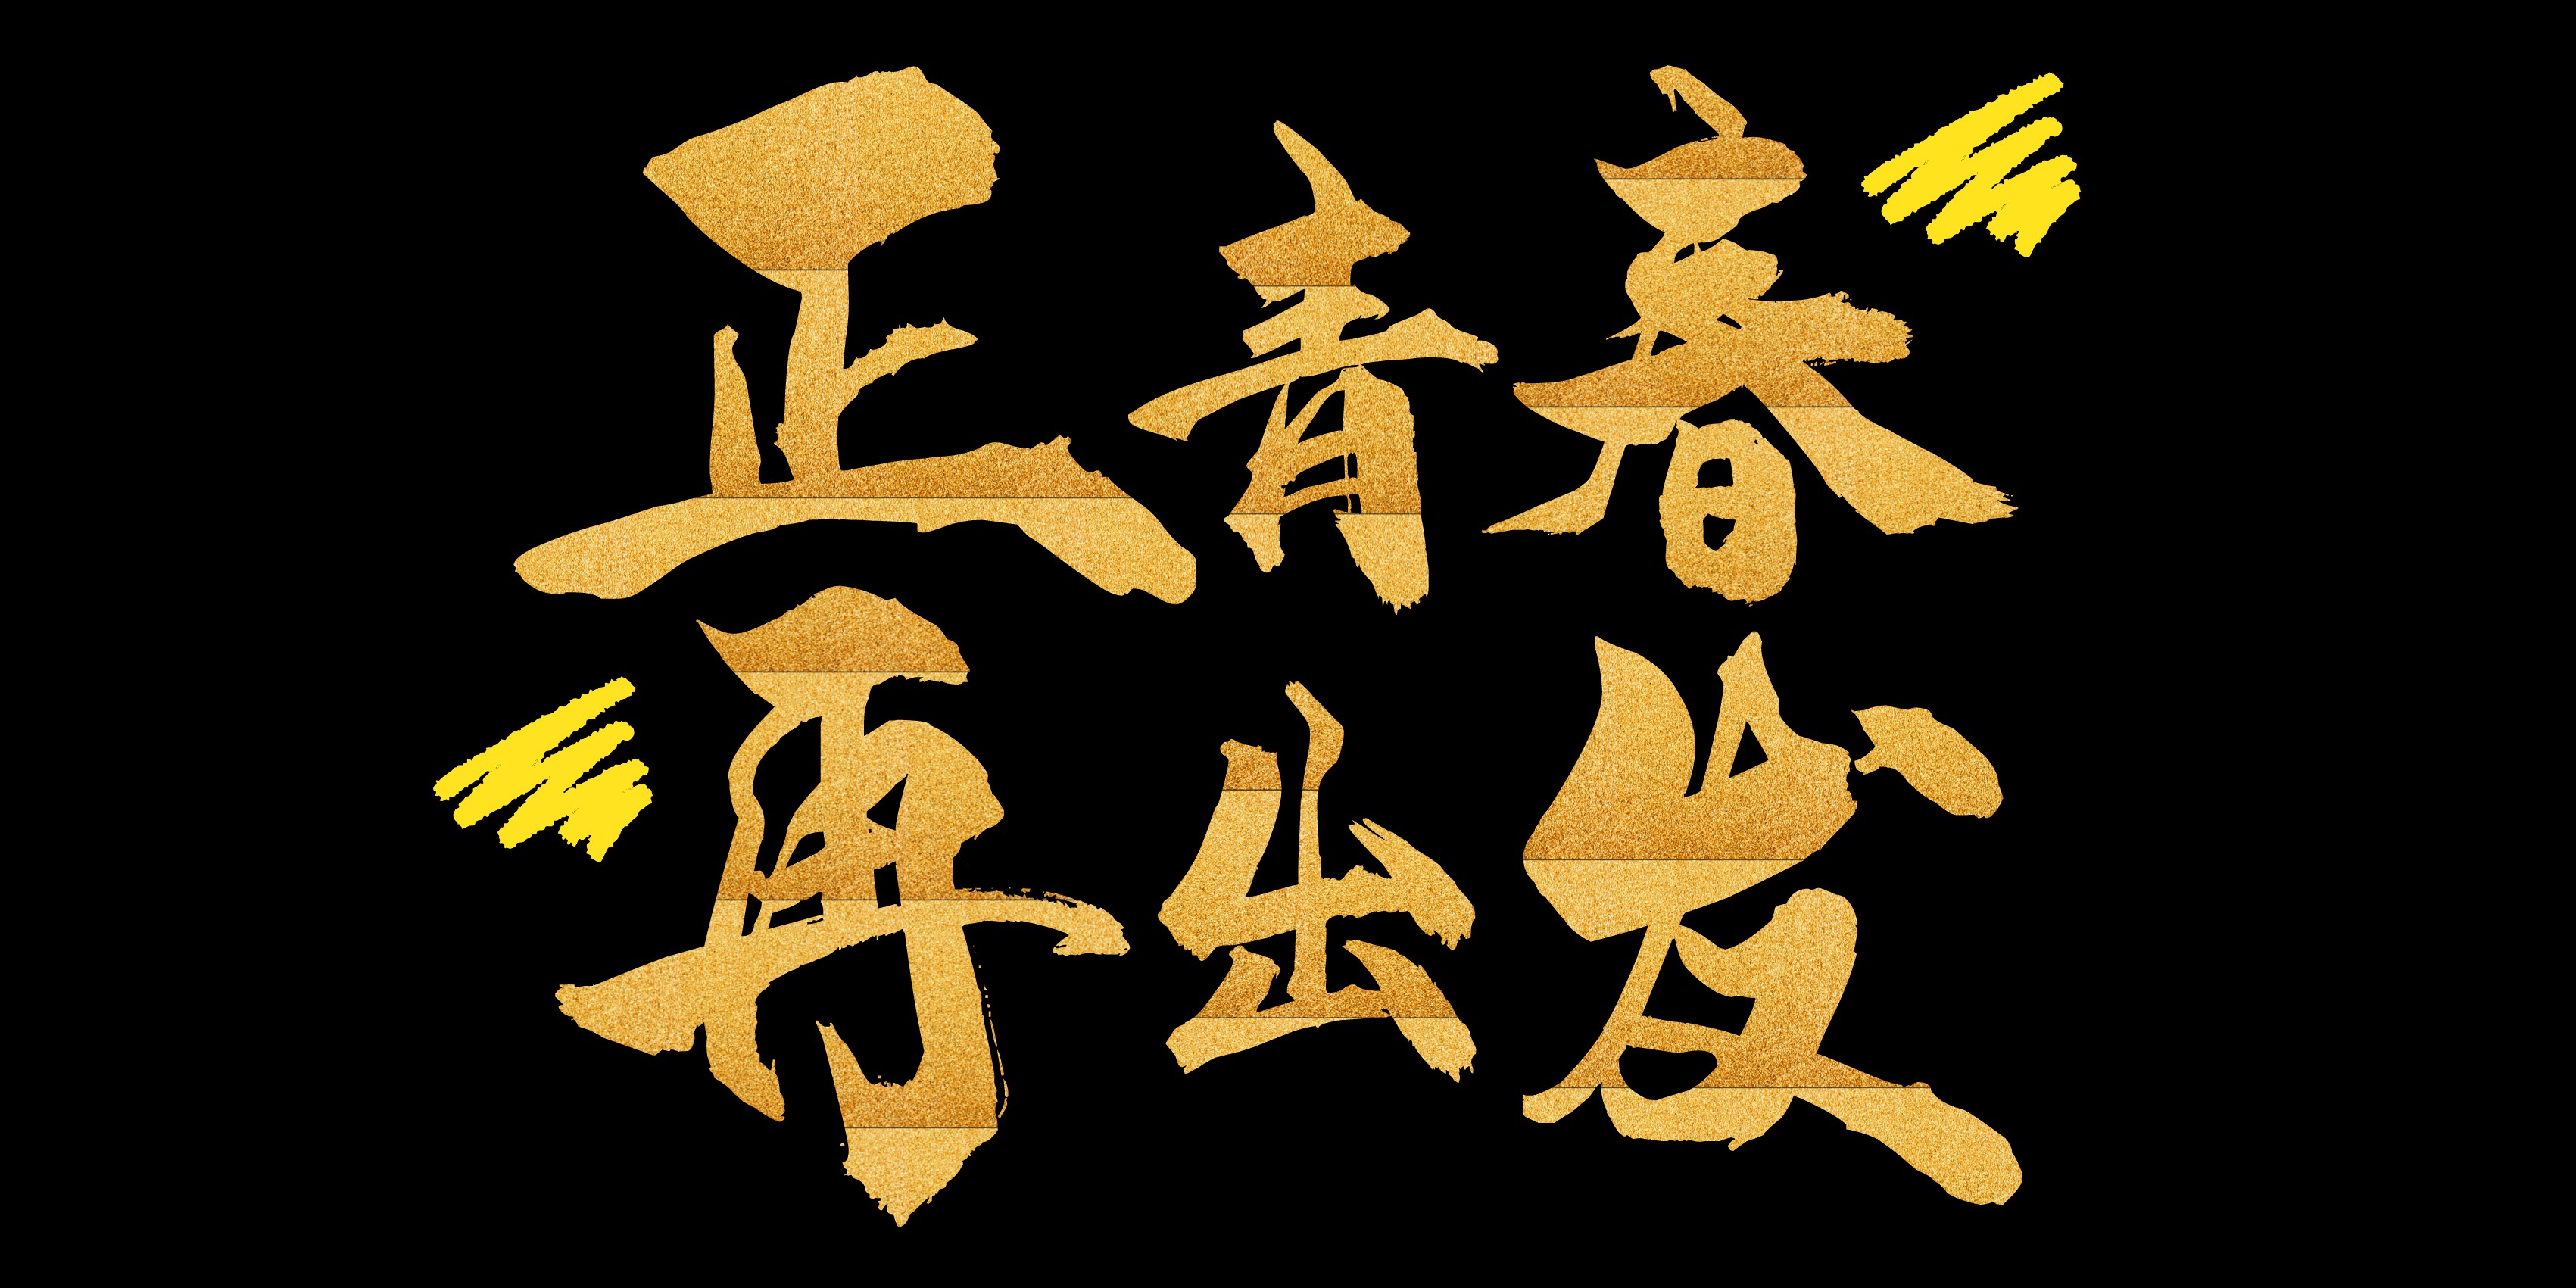 正青春
再出发